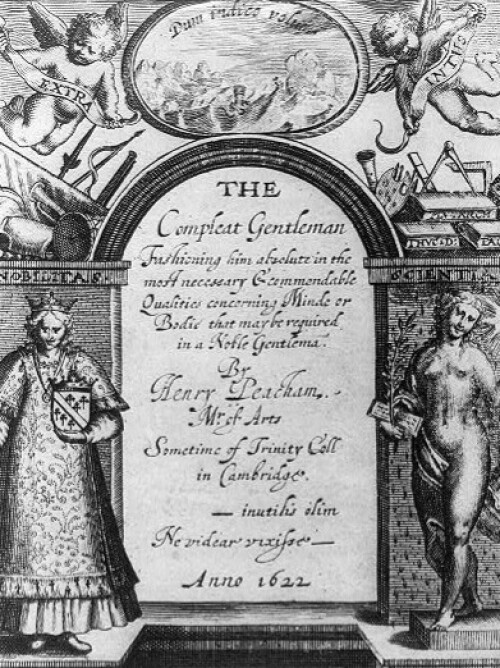 Dum indico volu
EXTRA
INTUS
THE
Compleat Gentleman
Fashioning him absolute in the
most necessary & commendable
Qualities concerning Minde or
Bodie that may be required
in a Noble Gentlemã.
By
Henry Peacham,
Mr. of Arts
Sometime of Trinity Coll
in Cambridge.
— inutilis olim
Ne videar vixisse —
Anno 1622
PLUTARCH
THUCID:
NOBILITAS
SCIENTI